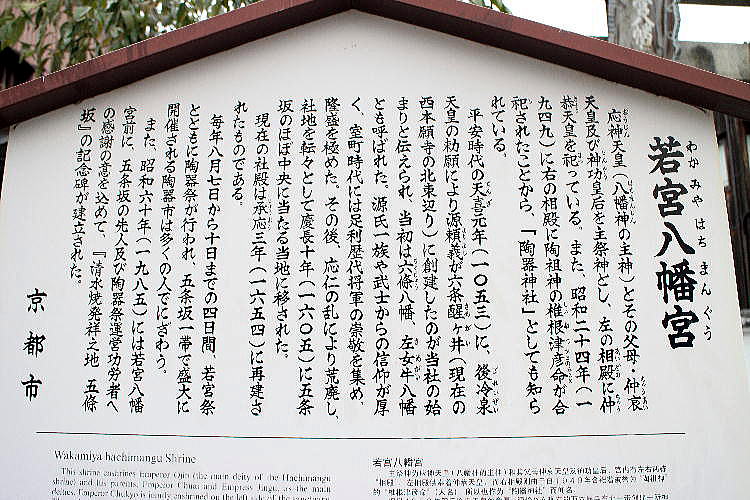 若宮八幡宮
わか みや はち まん ぐう
応神天皇（八幡神の主神）とその父母・仲哀
天皇及び神功皇后を主祭神とし、左の相殿に仲
恭天皇を祀っている。また、昭和二十四年（一
九四九）に右の相殿に陶祖神の椎根津彦命が合
祀されたことから、「陶器神社」としても知ら
れている。
平安時代の天喜元年（一〇五三）に、後冷泉
天皇の勅願により源頼義が六条醒ヶ井（現在の
西本願寺の北東辺り）に創建したのが当社の始
まりと伝えられ、当初は六條八幡、左女牛八幡
とも呼ばれた。源氏一族や武士からの信仰が厚
く、室町時代には足利歴代将軍の崇敬を集め、
隆盛を極めた。その後、応仁の乱により荒廃し、
社地を転々として慶長十年（一六〇五）に五条
坂のほぼ中央に当たる当地に移された。
現在の社殿は承応三年（一六五四）に再建さ
れたものである。
毎年八月七日から十日までの四日間、若宮祭
とともに陶器祭が行われ、五条坂一帯で盛大に
開催される陶器市は多くの人でにぎわう。
また、昭和六十年（一九八五）には若宮八幡
宮前に、五条坂の先人及び陶器祭運営功労者へ
の感謝の意を込めて、『清水焼発祥之地 五條
坂』の記念碑が建立された。
京都市
Wakamiya hachimangu Shrine
This shrine enshrines Emperor Ojin (the main deity of the Hachimangu
shrine) and his parents, Emperor Chuai and Empress Jingu, as the main
deities. Emperor Chukyo is jointly enshrined on the left side of the
若宫八幡宫